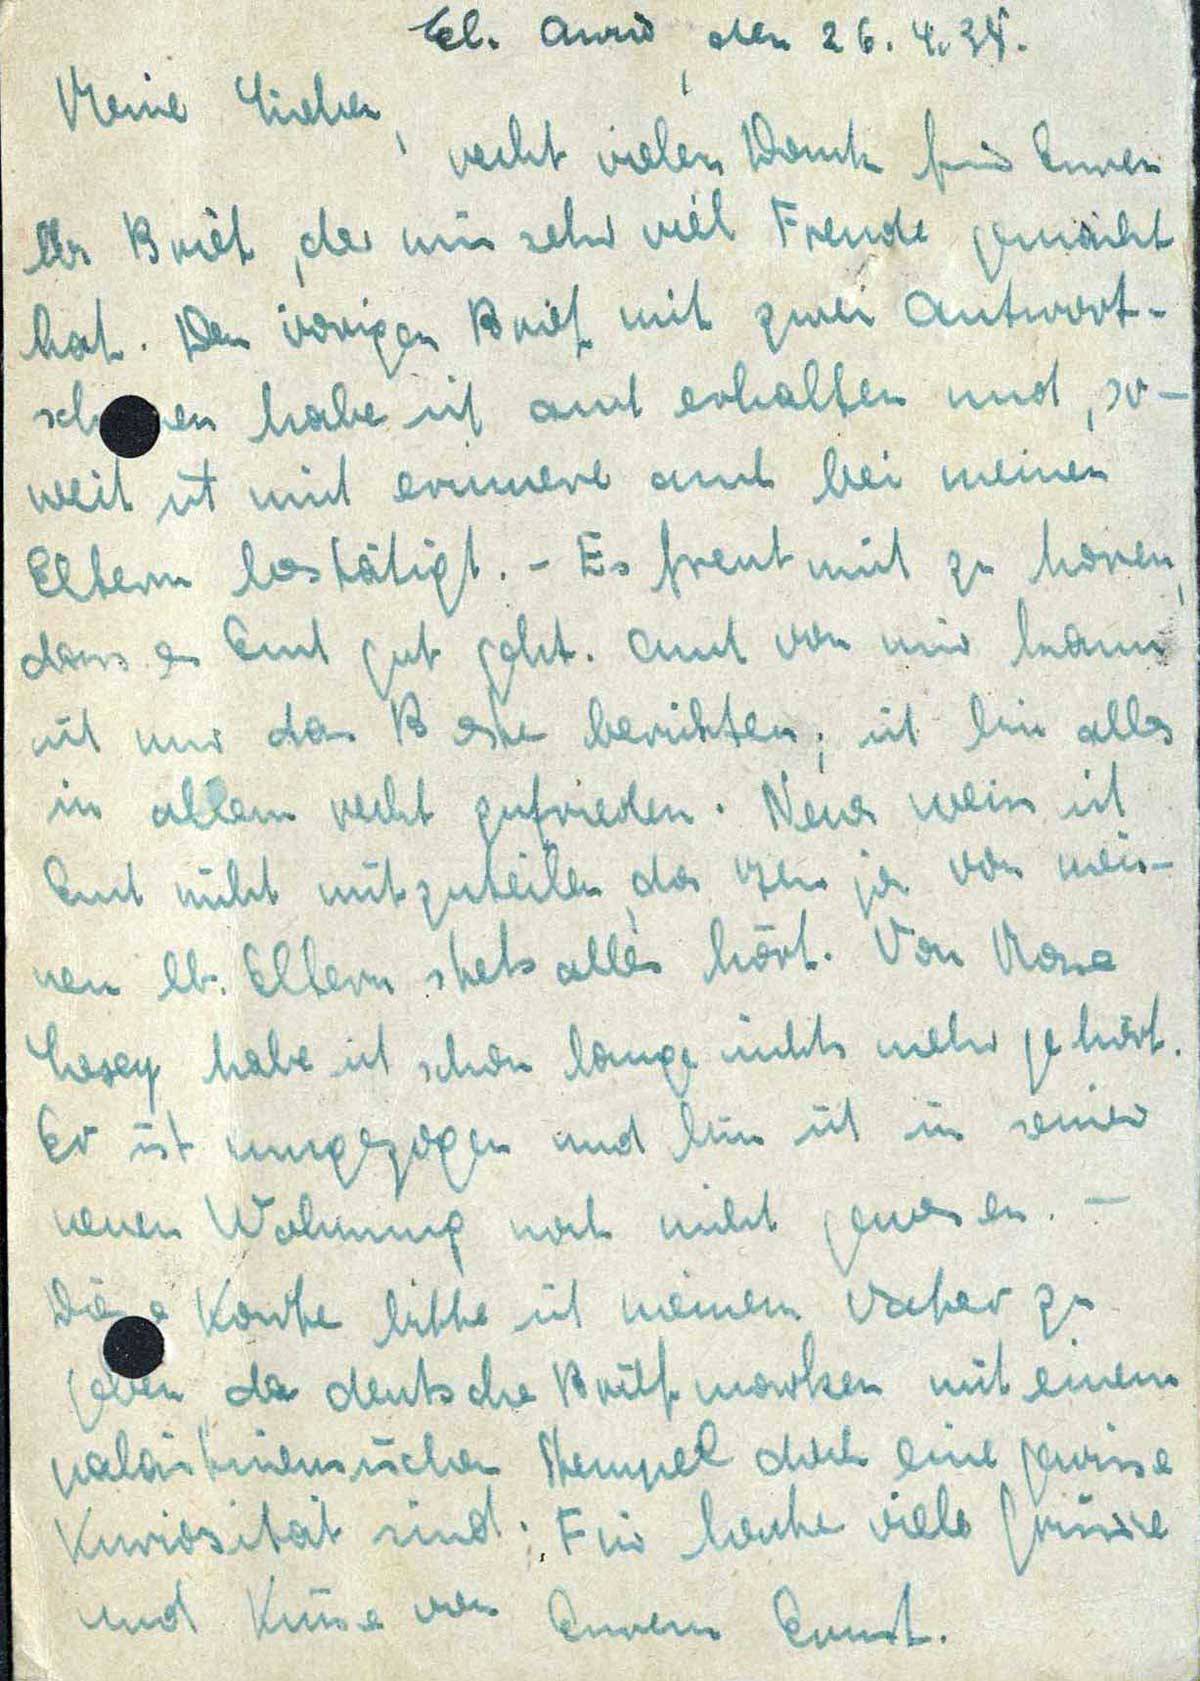 den 26.4.38.
Meine Lieben,
recht vielen Dank für Euren
lbn Brief, der mir sehr viel Freude gemacht
hat. Den vorigen Brief mit zwei Antwort-
sch nen habe ich auch erhalten und, so-
weit ich mich erinnere auch bei meinen
Eltern bestätigt. - Es freut mich zu hören,
dass es Euch gut geht. Auch von mir kann
ich nur das Beste berichten; ich bin alles
in allem recht zufrieden. Neues weiss ich
Euch nicht mitzuteilen, da Ihr ja von mei-
nen lb. Eltern stets alles hört. Von
habe ich schon lange nichts mehr gehört.
Er ist umgezogen und bin ich in seiner
neuen Wohnung noch nicht gewesen. -
Die e Karte bitte ich meinem Vater zu
geben da deutsche Briefmarken mit einem
palästinensischen Stempel doch eine gewisse
Kuriosität sind. Für heute viele Grüsse
und Küsse von Eurem Ernst.